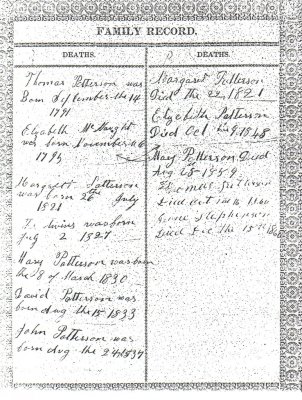 FAMILY RECORD.
DEATHS.
Thomas Patterson was
Born September the 14
1791
Elzabeth McNaught
was born November the 6
1795
Margrett Patterson
was born 26th July
1821
was born
2 1827
Mary Patterson was born
the 8 of March 1830
David Patterson was
born Aug the 15 1833
John Patterson was
born Aug the 24 1834
DEATHS.
Margaret Patterson
Died the 22 1821
Elzabeth Patterson
Died Oct the 9 1848
Mary Patterson Died
Aug 18 1859
Thomas Patterson
Died Oct 1860
Stephenson
Died Dec the 15th